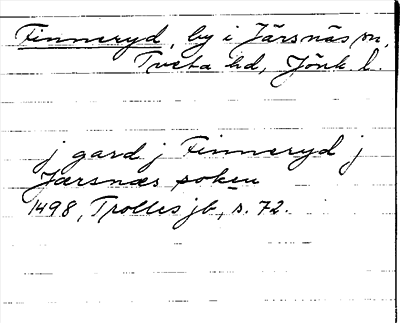 Finneryd, by i Järsnäs sn,
Tveta hd, Jönk l.
j gard j Finneryd j
Jærsnæs soken
1498, Trolles jb, s. 72.